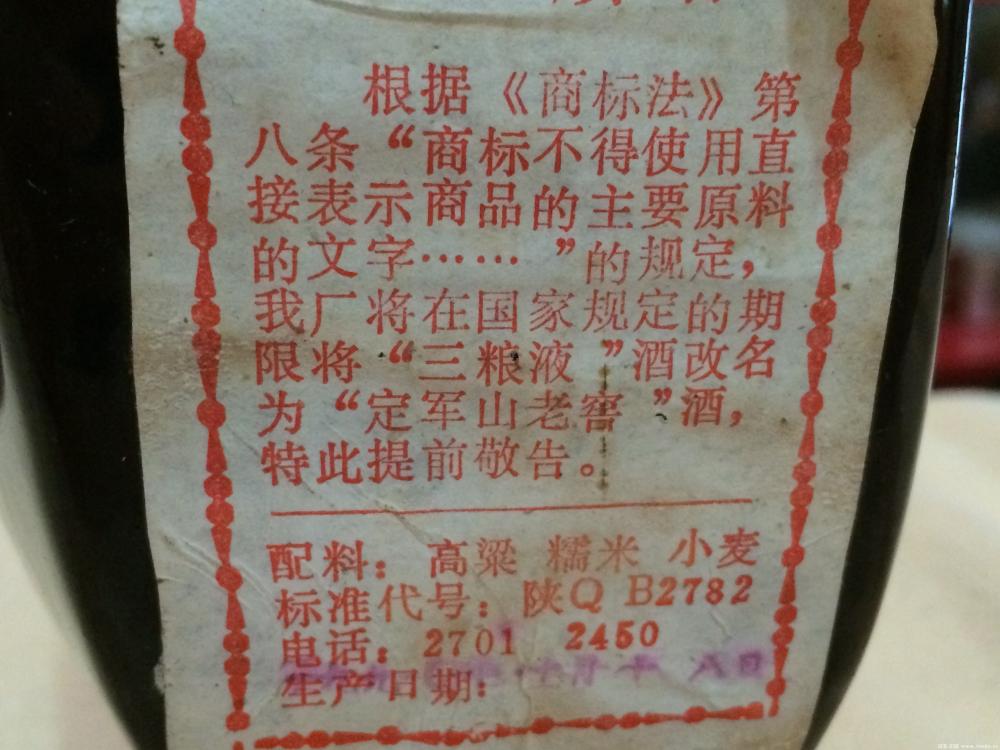 根据《商标法》第
八条“商标不得使用直
接表示商品的主要原料
的文字……”的规定，
我厂将在国家规定的期
限将“三粮液”酒改名
为“定军山老窖”酒，
特此提前敬告。
配料：高粱 糯米 小麦
标准代号：陕Q B2782
电话：2701 2450
生产日期：